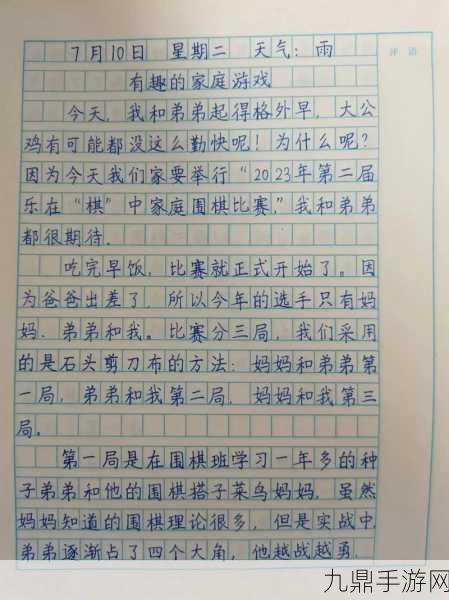 7月10日 星期二 天气：雨
评语
有趣的家庭游戏
今天，我和弟弟起得格外早，大公
鸡有可能都没这么勤快呢！为什么呢？
因为今天我们家要举行“2023年第二届
乐在“棋”中家庭围棋比赛，”我和弟弟
都很期待．
吃完早饭，比赛就正式开始了。因
为爸爸出差了，所以今年的选手只有妈
妈．弟弟和我。比赛分三局，我们采用
的是石头剪刀布的方法：妈妈和弟弟第
一局，弟弟和我第二局，妈妈和我第三
局。
第一局是在围棋班学习一年多的种
子弟弟和他的围棋搭子菜鸟妈妈，虽然
妈妈知道的围棋理论很多，但是实战中
弟弟逐渐占了四个大角，他越战越勇．
九鼎手游网